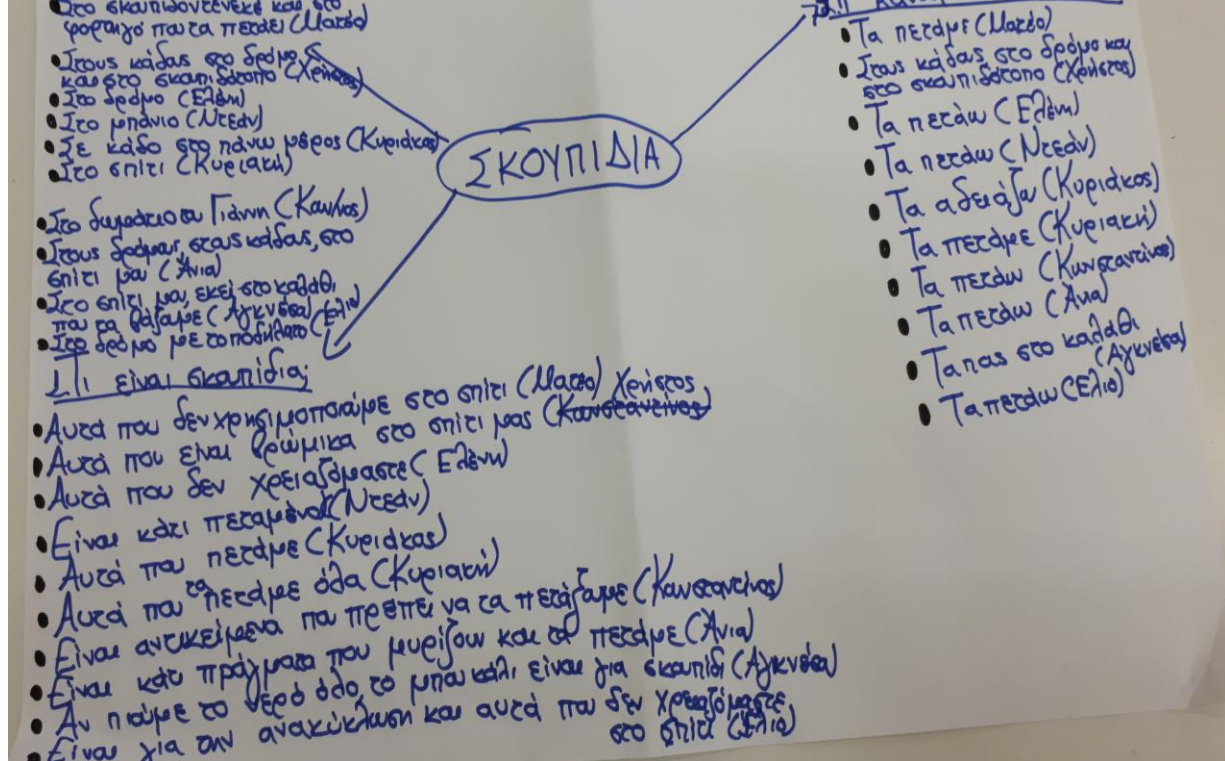 Στο σκουπιδοντενεκέ και στο
φορτηγό που τα πετάει (Ματέο)
Στους κάδους στο δρόμο
και στο σκουπιδότοπο (Χρήστος)
Στο δρόμο (Ελένη)
Στο μπάνιο (Ντεάν)
Σε κάδο στο πάνω μέρος (Κυριάκος)
Στο σπίτι (Κυριακή)
Στο δωμάτιο του Γιάννη (Κων/νος)
Στους δρόμους, στους κάδους, στο
σπίτι μου (Άνια)
Στο σπίτι μου, εκεί στο καλάθι
που τα βάζουμε (Αγκνέσα)
Στο δρόμο με το ποδήλατο (Έλιο)
ΣΚΟΥΠΙΔΙΑ
Τα πετάμε (Ματέο)
Στους κάδους στο δρόμο και
στο σκουπιδότοπο (Χρήστος)
Τα πετάω (Ελένη)
Τα πετάω (Ντεάν)
Τα αδειάζω (Κυριάκος)
Τα πετάμε (Κυριακή)
Τα πετάω (Κωνσταντίνος)
Τα πετάω (Άνια)
Τα πας στο καλάθι
(Αγκνέσα)
Τα πετάω (Έλιο)
1. Τι είναι σκουπίδια;
Αυτά που δεν χρησιμοποιούμε στο σπίτι (Ματέο) Χρήστος
Αυτά που είναι βρώμικα στο σπίτι μας (Κωνσταντίνος)
Αυτά που δεν χρειαζόμαστε (Ελένη)
Είναι κάτι πεταμένο (Ντεάν)
Αυτά που πετάμε (Κυριάκος)
Αυτά που τα πετάμε όλα (Κυριακή)
Είναι αντικείμενα που πρέπει να τα πετάξουμε (Κωνσταντίνος)
Είναι κάτι πράγματα που μυρίζουν και τα πετάμε (Άνια)
Αν πιούμε το νερό όλο, το μπουκάλι είναι για σκουπίδι (Αγκνέσα)
Είναι για την ανακύκλωση και αυτά που δεν χρειαζόμαστε
στο σπίτι (Έλιο)